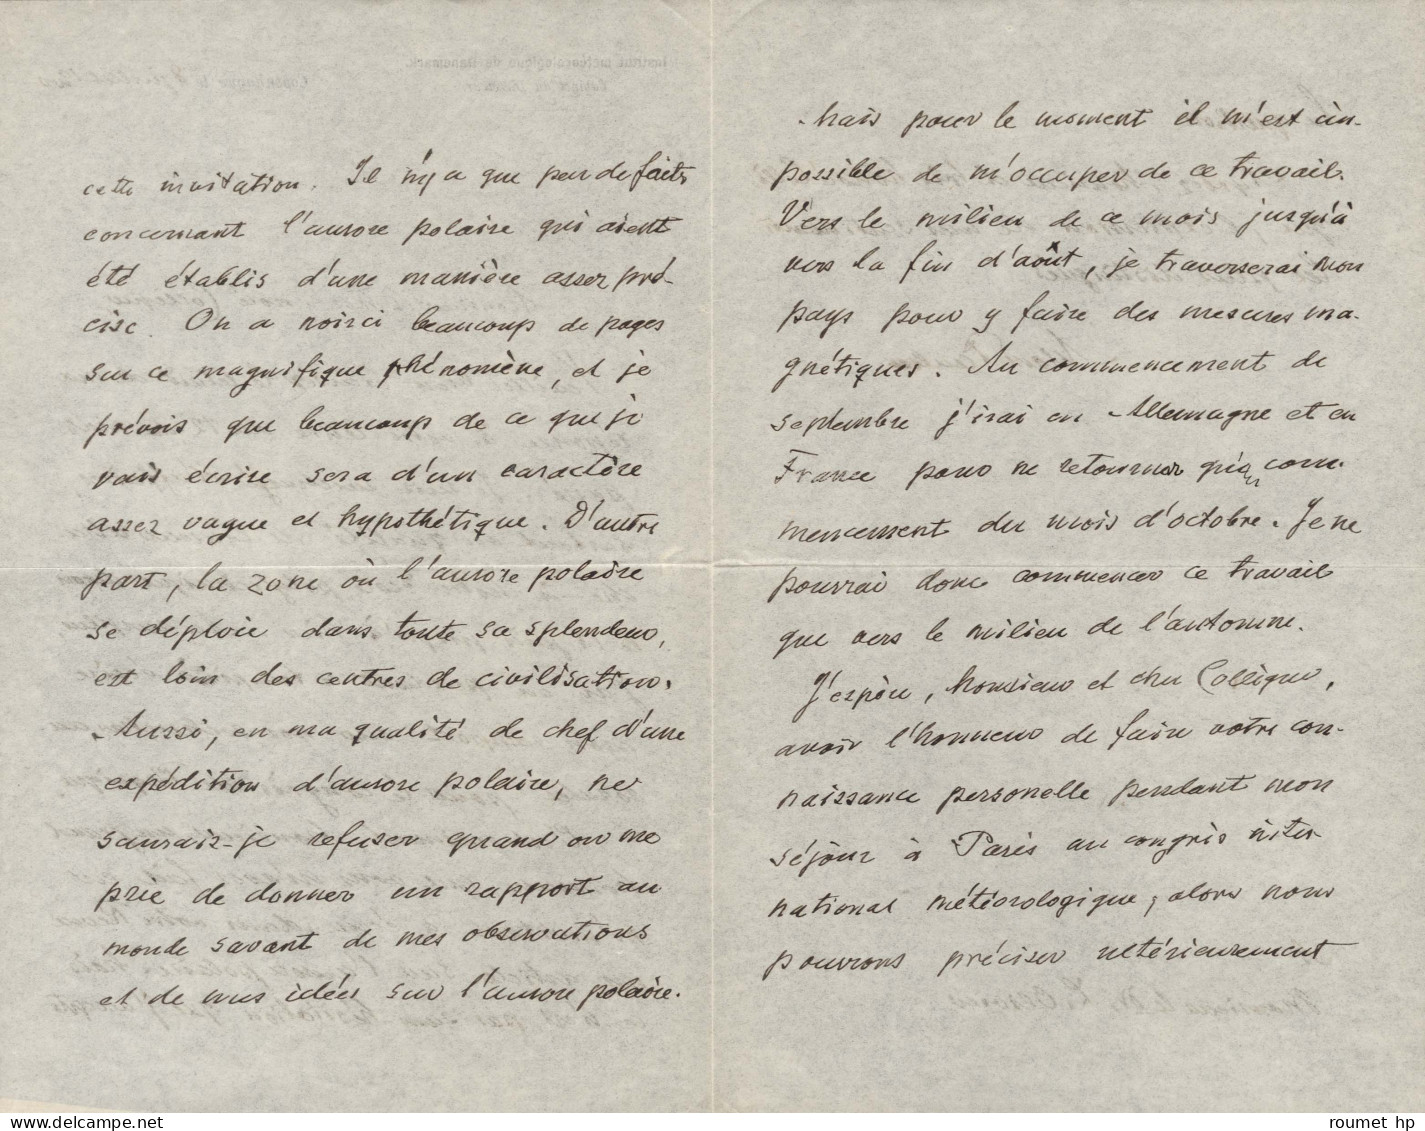 cette invitation. Il n'y a que peu de faits
concernant l'aurore polaire qui aient
été établis d'une manière assez pré-
cise. On a noirci beaucoup de pages
sur ce magnifique phénomène, et je
prévois que beaucoup de ce que je
vais écrire sera d'un caractère
assez vague et hypothétique. D'autre
part, la zone où l'aurore polaire
se déploie dans toute sa splendeur,
est loin des centres de civilisation.
Aussi, en ma qualité de chef d'une
expédition d'aurore polaire, ne
saurais-je refuser quand on me
prie de donner un rapport au
monde savant de mes observations
et de mes idées sur l'aurore polaire.
Mais pour le moment il m'est im-
possible de m'occuper de ce travail.
Vers le milieu de ce mois jusqu'à
vers la fin d'août, je traverserai mon
pays pour y faire des mesures ma-
gnétiques. Au commencement de
septembre j'irai en Allemagne et en
France pour ne retourner qu'au com-
mencement du mois d'octobre. Je ne
pourrai donc commencer ce travail
que vers le milieu de l'automne.
J'espère, Monsieur et cher Collègue,
avoir l'honneur de faire votre con-
naissance personelle pendant mon
séjour à Paris au congrès inter-
national météorologique; alors nous
pourrons préciser ultérieurement
roumet hp